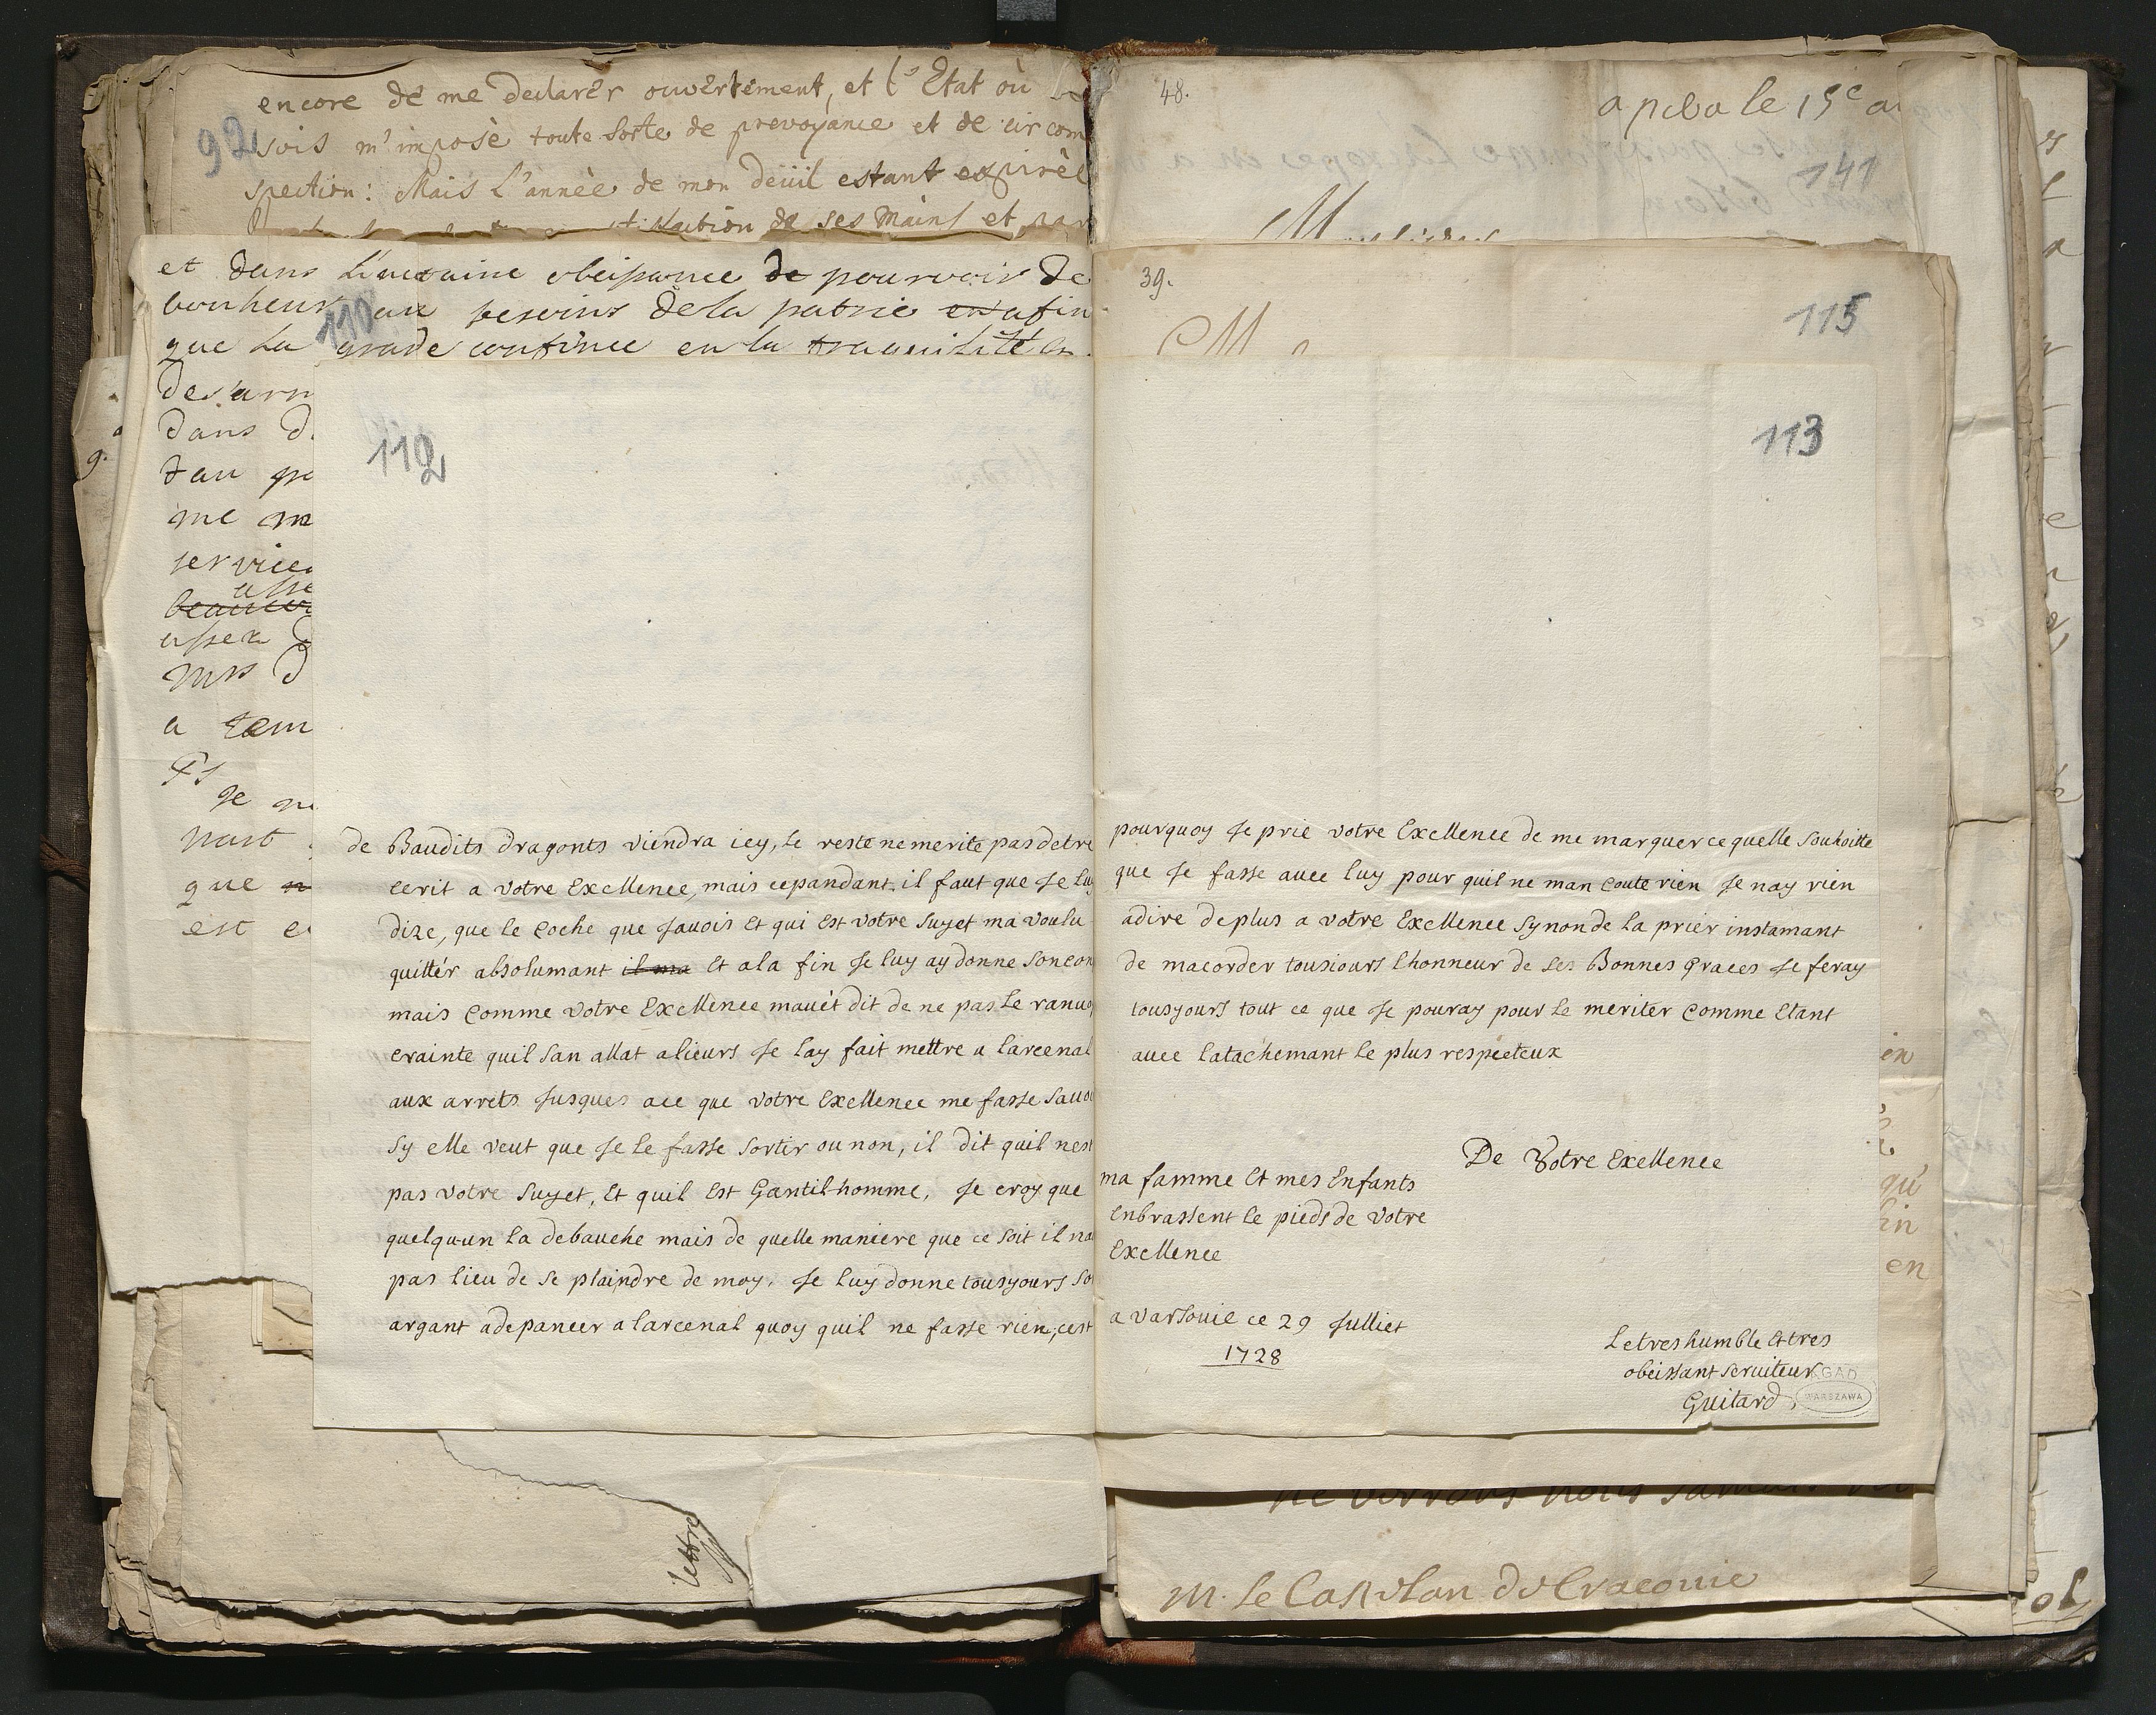 encore de me declarer ouvertement, et l'Etat où
92
sois m'imposè toute sorte de prevoyance et de circom
spection: Mais l'annèe de mon deüil estant expirèe
de ses mains et par
et dans obeissance de pourvoir de
bonheur au besoins de la patrie afin
110
que La grade confince en la tranquilitté
des arm
dans d
tan
me
service
beaucou
assez
Mrs D
a tem
PS
Je
part
que
est
112
de Baudits dragonts viendra icy, Le reste ne merite pas detre
ecrit a votre Exellence, mais cepandant, il faut que Je luy
dize, que le Coche que Javois Et qui Est votre Sujet ma voulu
quittér absolumant il ma Et a la fin Je luy ay donne Son con
mais Comme votre Exellence mavèt dit de ne pas Le ranvo
crainte quil San allat alieurs Je lay fait mettre a larcenal
aux arrets Jusques ace que votre Exellence me fasse Savoi
Sy elle veut que Je Le fasse Sortir ou non, il dit quil nest
pas votre Sujet, Et quil Est Gantilhomme, Je croy que
quelqu-un la debauche mais de quelle maniere que ce Soit il na
pas lieu de Se plaindre de moy, Je luy donne tousyours So
argant adepancer a larcenal quoy quil ne fasse rien, cest
lettre
48.
a peba le 15e a
141
39.
115
113
pourquoy Je prie votre Exellence de me marquer ce quelle Souhoitte
que Je fasse avec luy pour quil ne man Coute rien Je nay rien
adire de plus a votre Exellence Sy non de La priér instamant
de macorder tousiours Lhonneur de Ses Bonnes Graces Je feray
tousyours tout ce que Je pouray pour Le meriter Comme Etant
avec Latachemant Le plus respecteux
De Votre Exellence
ma famme Et mes Enfants
Enbrassent Le pieds de votre
Exellence
a varsovie ce 29 Julliet
1728
Le tres humble Et tres
obeissant Serviteur
Guitard
AGAD
WARSZAWA
ne verrons nous Jamais
M. Le Castelan de Cracovie
en
qu
en